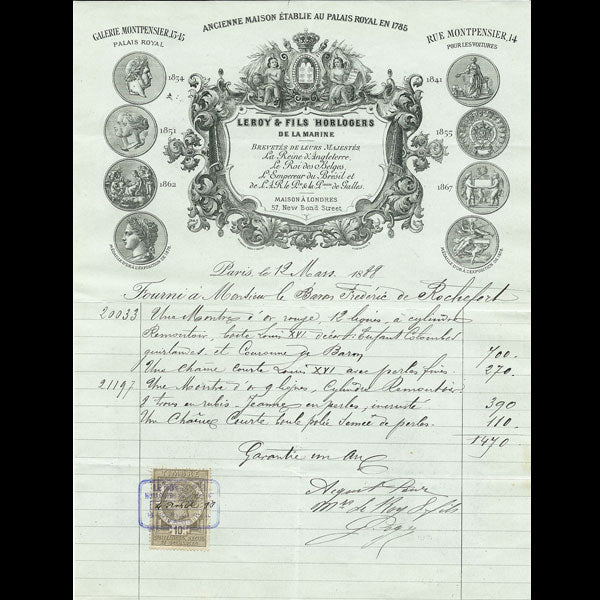 ANCIENNE MAISON ÉTABLIE AU PALAIS ROYAL EN 1785
GALERIE MONTPENSIER, 13-15
PALAIS ROYAL
RUE MONTPENSIER, 14
POUR LES VOITURES
1834
1851
1862
MÉDAILLE D'OR À L'EXPOSITION DE 1878
1841
1855
1867
MÉDAILLE D'OR À L'EXPOSITION DE 1878
LEROY & FILS HORLOGERS
DE LA MARINE
BREVETÉS DE LEURS MAJESTÉS
La Reine d'Angleterre,
Le Roi des Belges,
L'Empereur du Brésil et
de L.A.R. le Pce. & la Psse. de Galles.
MAISON À LONDRES
57, New Bond Street
Paris, le 12 Mars 1888
Fourni à Monsieur le Baron Fréderic de Rochefort
20033 Une Montre d'or rouge, 12 lignes, à cylindre
Remontoir, boite Louis XVI décor Enfant Colombes
guirlandes et Couronne de Baron 700.
Une Chaine Courte Louis XVI avec perles fines. 270.
21197 Une Montre d'or 9 lignes, Cylindre Remontoir
4 trous en rubis, Jeanne en perles, incrusté 390
Une Chaine Courte boule polie Semée de perles. 110.
1470.
Garantie un An
Acquit Pour
Mrs Le Roy & fils
10c